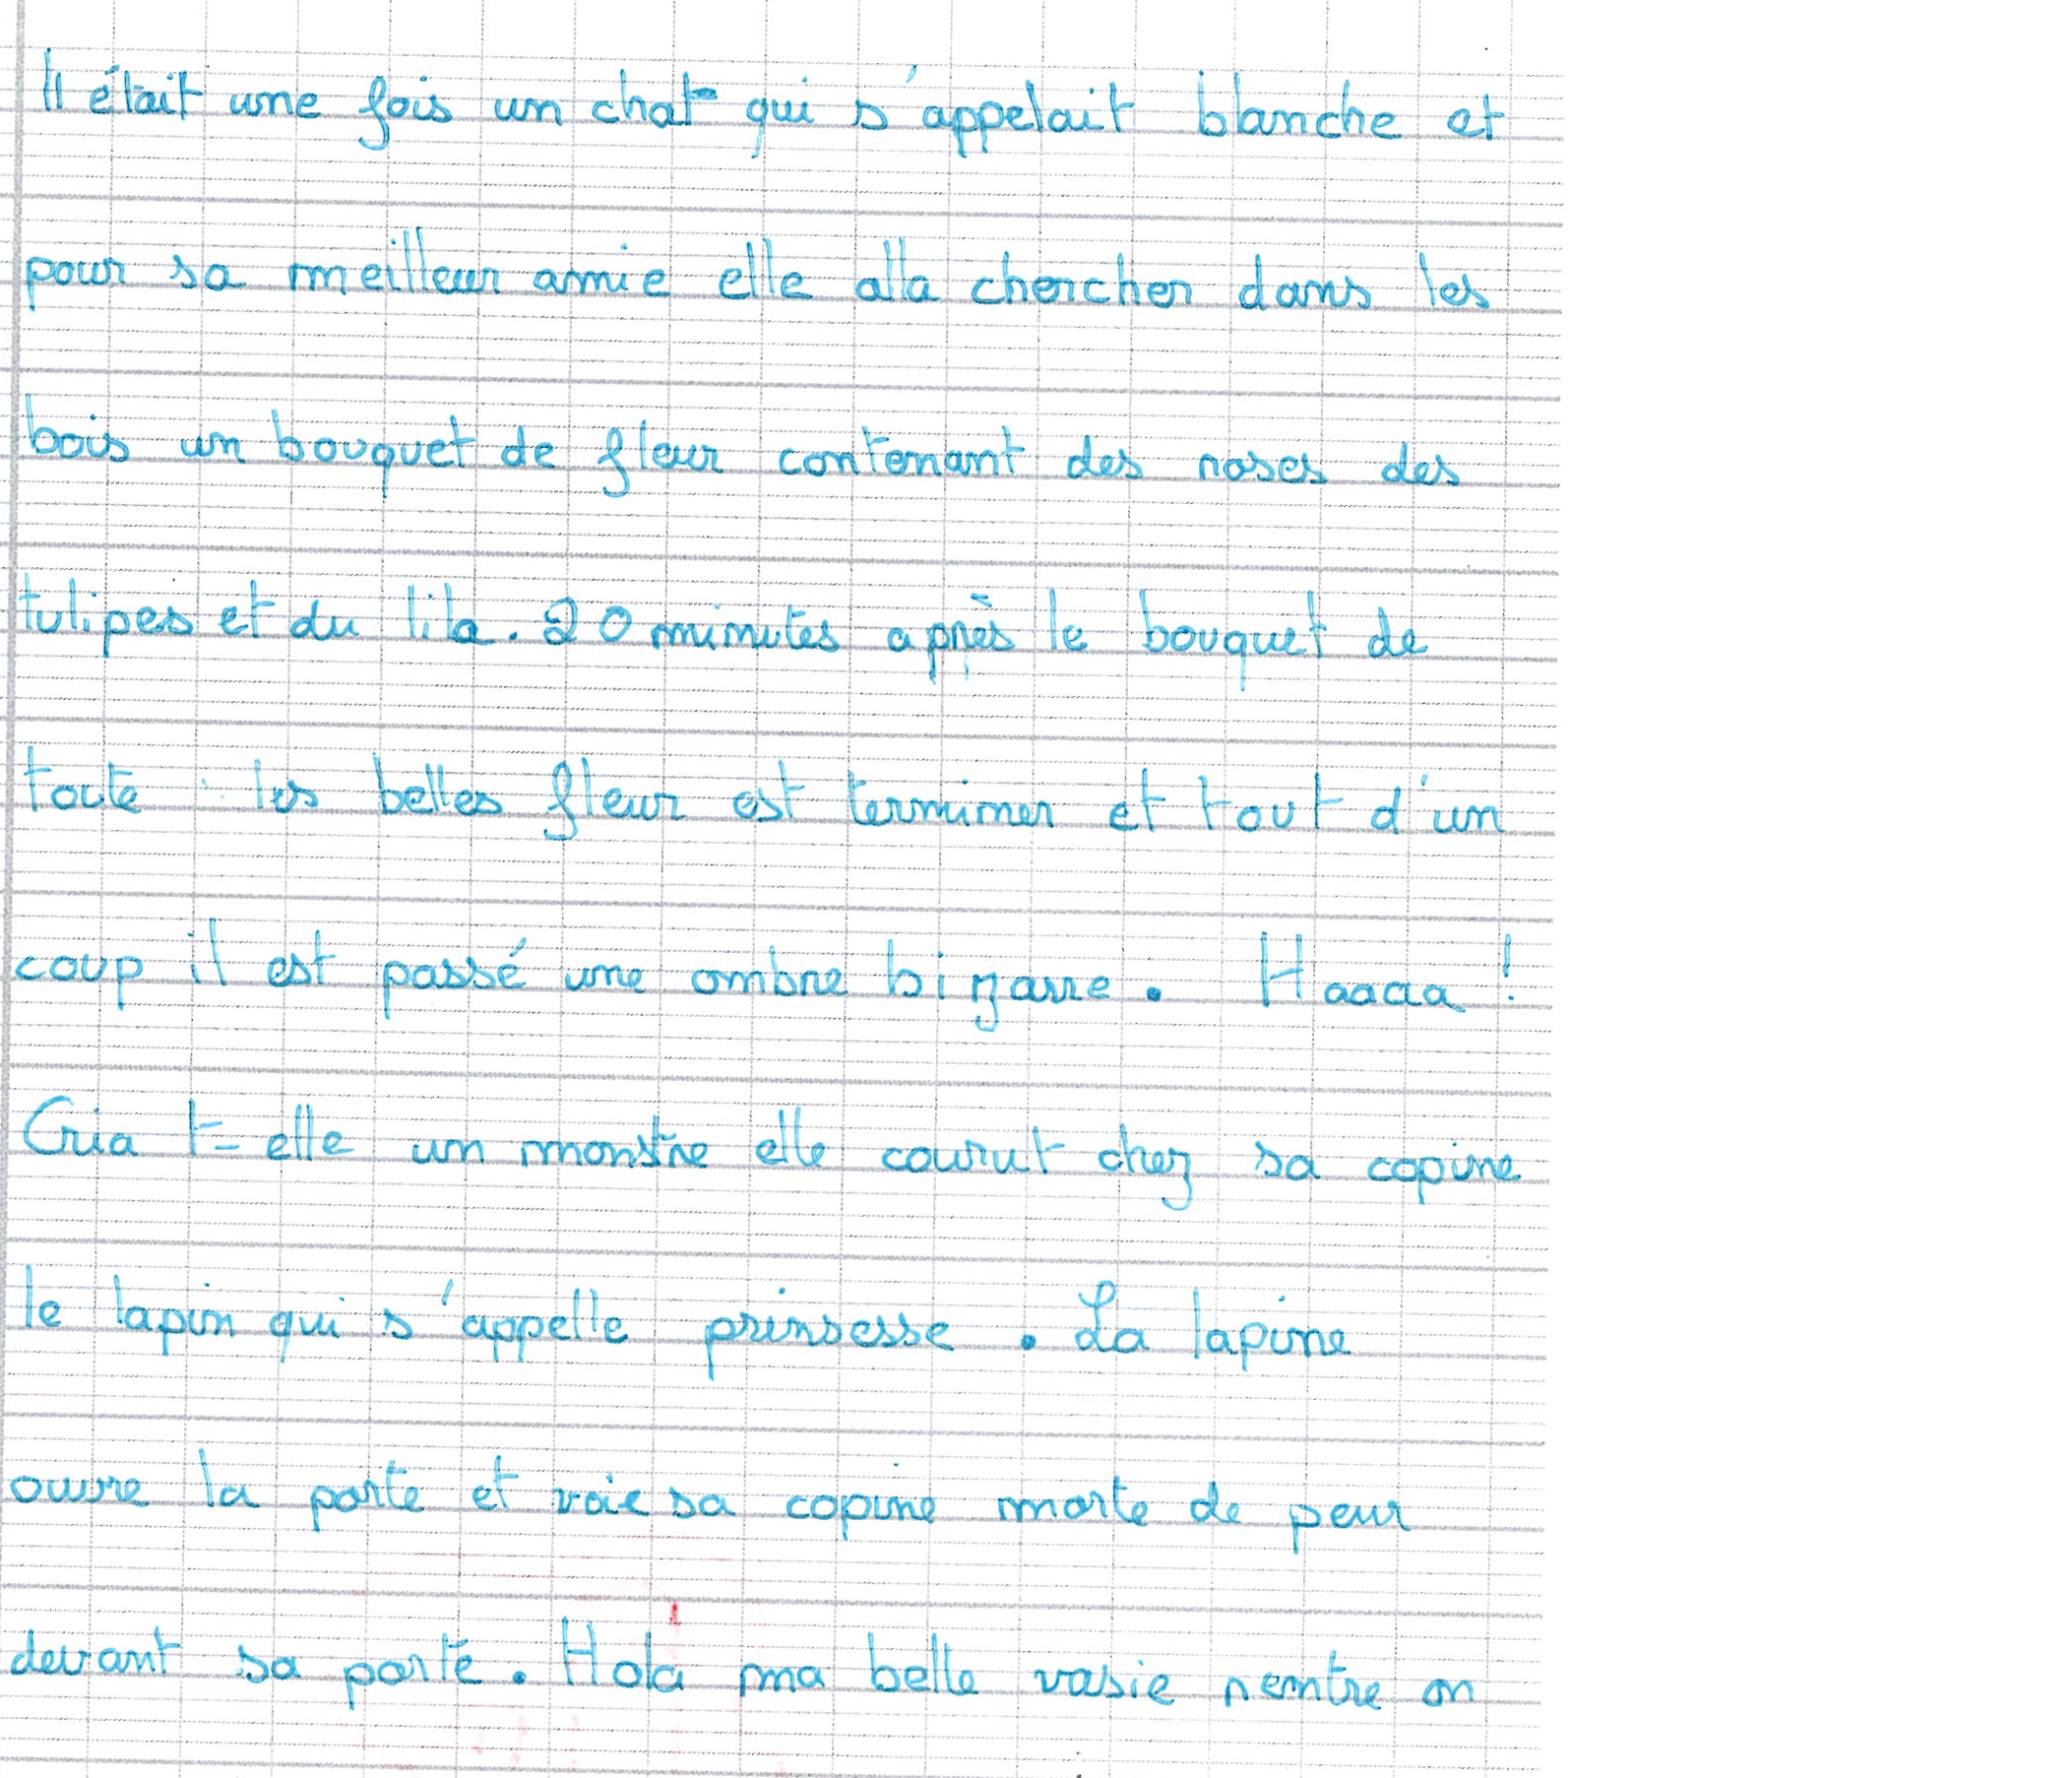 Il était une fois un chat qui s'appelait blanche et
pour sa meilleur amie elle alla chercher dans les
bois un bouquet de fleur contenant des roses des
tulipes et du lila. 20 minutes après le bouquet de
toute les belles fleur est terminer et tout d'un
coup il est passé une ombre bizarre. Haaaa !
Cria t-elle un monstre elle courut chez sa copine
le lapin qui s'appelle prinsesse. La lapine
ouvre la porte et voie sa copine morte de peur
devant sa porte. Hola ma belle vasie rentre on